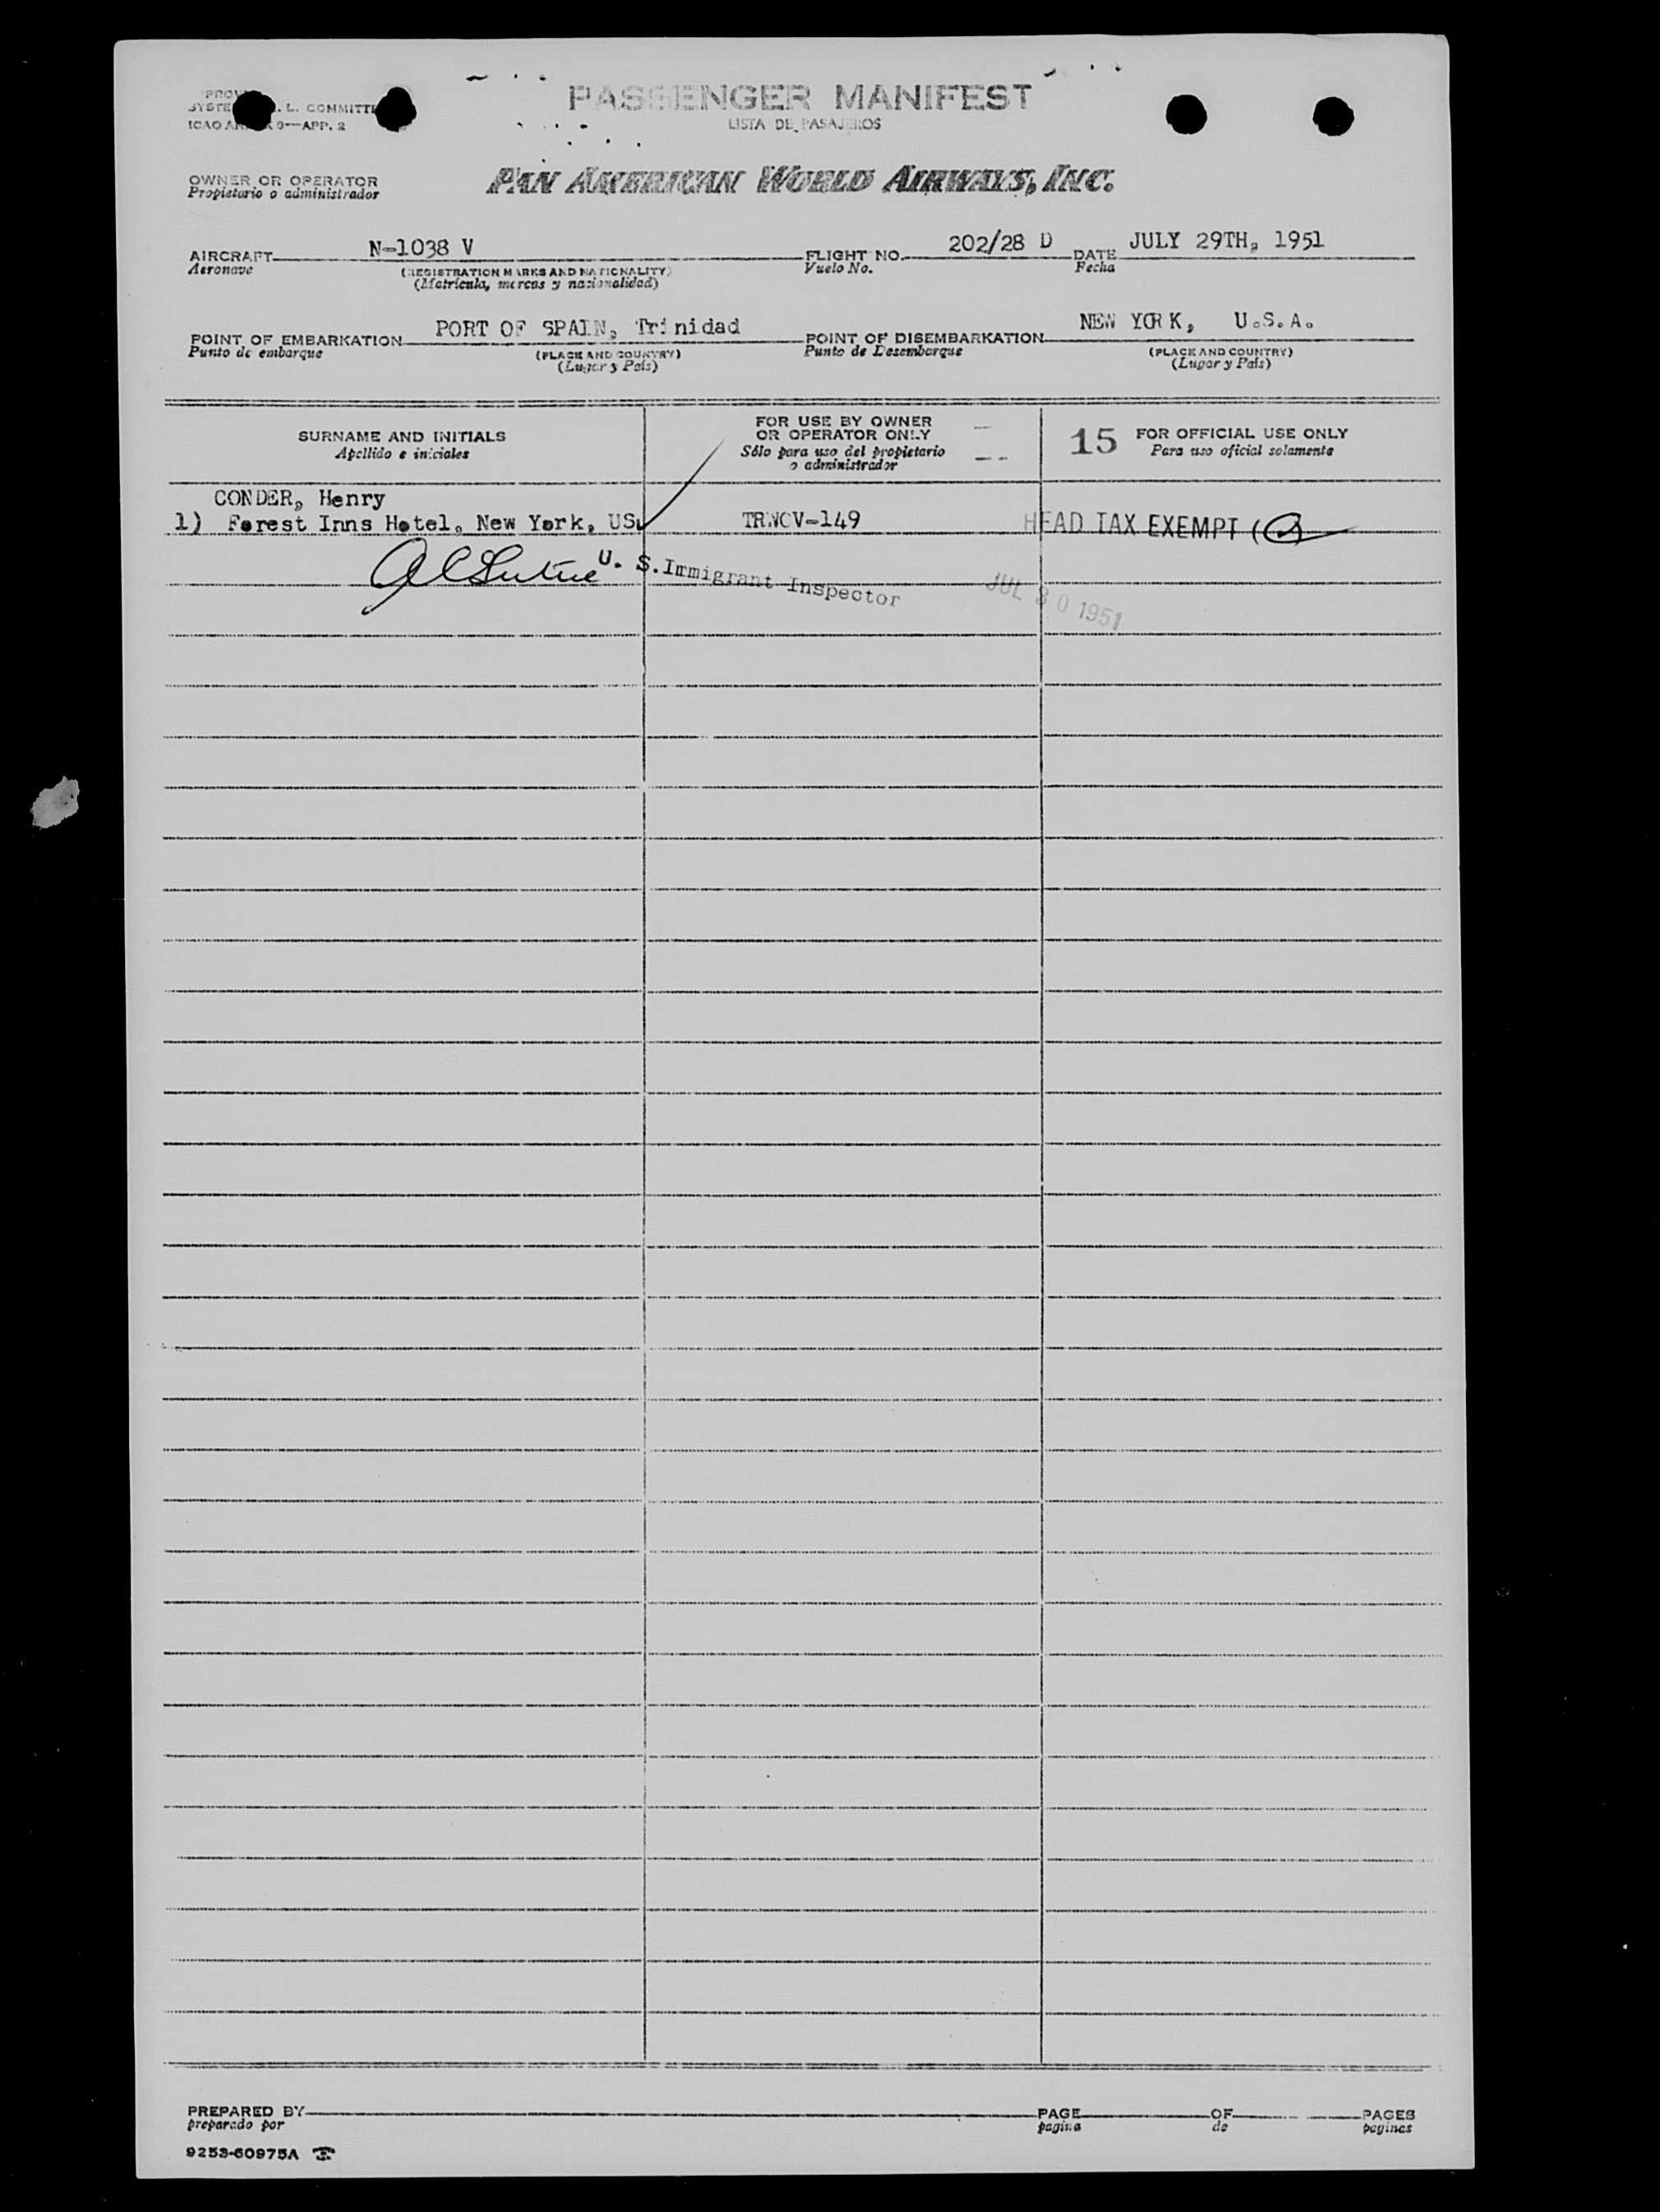 PASSENGER MANIFEST
LISTA DE PASAJEROS
L. COMMITTE
ICAO 9—APP. 2
OWNER OR OPERATOR
Propietario o administrador
PAN AMERICAN WORLD AIRWAYS, INC.
AIRCRAFT N-1038 V FLIGHT NO. 202/28 D DATE JULY 29TH, 1951
Aeronave (REGISTRATION MARKS AND NATIONALITY) Vuelo No. Fecha
(Matricula, marcas y nacionalidad)
POINT OF EMBARKATION PORT OF SPAIN, Trinidad POINT OF DISEMBARKATION NEW YORK, U.S.A.
Punto de embarque (PLACE AND COUNTRY) Punto de Desembarque (PLACE AND COUNTRY)
(Lugar y País) (Lugar y País)
SURNAME AND INITIALS
Apellido e iniciales
FOR USE BY OWNER
OR OPERATOR ONLY
Sólo para uso del propietario
o administrador
15 FOR OFFICIAL USE ONLY
Para uso oficial solamente
CONDER, Henry
1) Forest Inns Hotel. New York, US. TRNCV-149 HEAD TAX EXEMPT (
U. S. Immigrant Inspector JUL 30 1951
PREPARED BY PAGE OF PAGES
preparado por pagina de paginas
9253-60975A